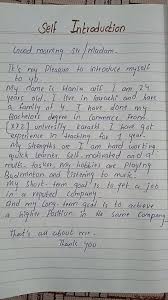 Self Introduction
Good morning Sir/Madam.
It's my Pleasure to introduce myself
to yb.
My name is Hania Arif I am 24
years old. I live in karachi and have
a family of 4. I have done my
Bachelor's degree in Commerce from
XYZ university karachi. I have got
experience in teaching for 1 year.
My strengths are I am hard working
quick learner self-motivated and a
My hobbies are Playing
Badminton and listening to music.
My short-term goal is to get a job
in a reputed company
And my long-term goal is to achieve
a higher Position in the same company
That's all about me.
Thank you